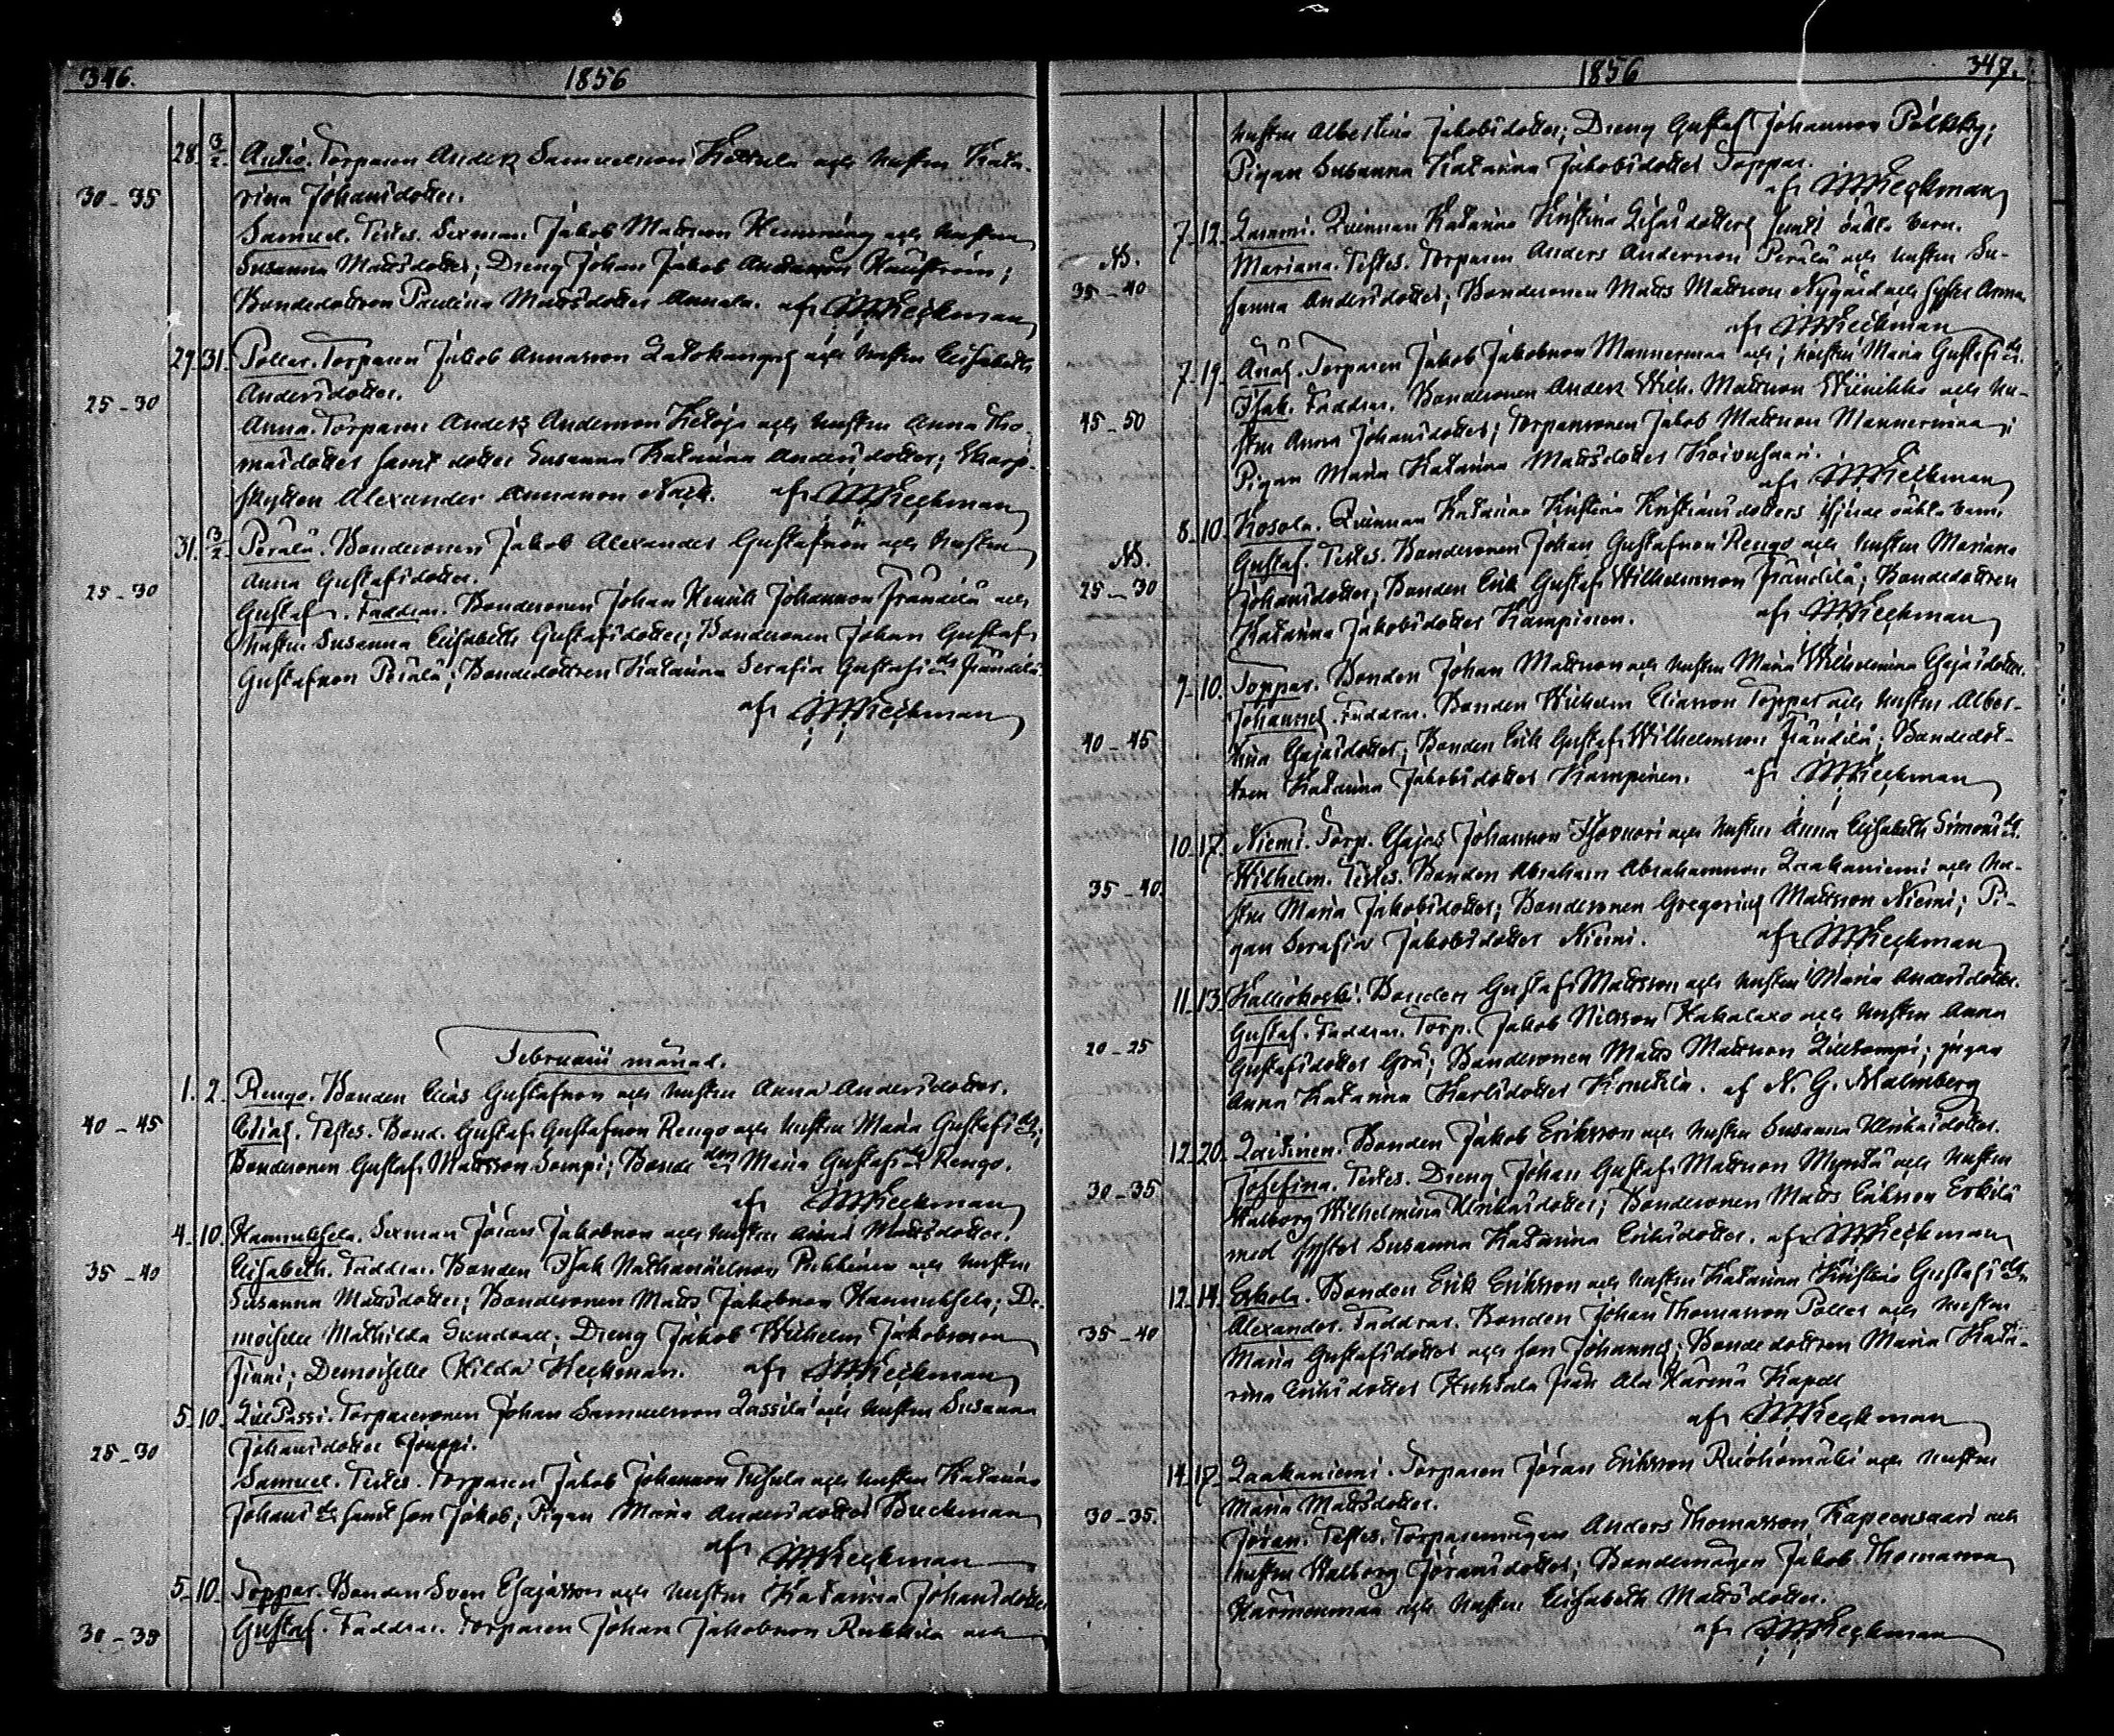 346. 1856
28. 3/2. Antio. Torparen Anders Samuelsson Kottula och hustru Kata-
30-35 rina Johansdotter.
Samuel. Testes. Sexman Jakob Mattsson Hemming och hustru
Susanna Mattsdotter; Dreng Johan Jakob Andersson
Bondedottren Paulina Mattsdotter Annala. af Heckman
29. 31. Poller. Torparen Jakob Annasson Latokangas och hustru Elisabeth
25-30 Andersdotter.
Anna. Torparen Anders Andersson Ketoja och hustru Anna Tho-
masdotter samt dotter Susanna Katarina Andersdotter; Skarp-
skytten Alexander Annanson af Heckman
31. 3/2. Perälä. Bondesonen Jakob Alexander Gustafsson och hustru
25-30 Anna Gustafsdotter.
Gustaf. Faddrar. Bondesonen Johan Henrik Johansson Frändilä och
hustru Susanna Elisabeth Gustafsdotter; Bondesonen Johan Gustaf
Gustafsson Perälä; Bondedottren Katarina Serafia Gustafsdr Frändilä.
af Heckman
Februarii månad.
1. 2. Rengo. Bonden Elias Gustafsson och hustru Anna Andersdotter.
40-45 Elias. Testes. Bond. Gustaf Gustafsson Rengo och hustru Maria Gustafsdr;
Bondesonen Gustaf Mattsson Sompi; Bonde don Maria Gustafsdr Rengo.
af Heckman
4. 10. Hannuksela. Sexman Jöran Jakobsson och hustru Mattsdotter.
35-40 Elisabeth. Faddrar. Bonden Isak Nathanaelsson Pukkinen och hustru
Susanna Mattsdotter; Bondesonen Matts Jakobsson Hannuksela; De-
moiselle Mathilda Sundvall; Dreng Jakob Wilhelm Jakobsson
Jinni; Demoiselle Hilda Heckman. af Heckman
5. 10. Lill Passi. Torparesonen Johan Samuelsson Lassila och hustru Susanna
25-30 Johansdotter Jouppi.
Samuel. Testes. Torparen Jakob Johansson Tusula och hustru Katarina
Johansdr samt son Jakob; Pigan Maria Andersdotter Buckman
af Heckman
5. 10. Toppar. Bonden Sven Esajasson och hustru Katarina Johansdotter
30-35 Gustaf. Faddrar. Torparen Johan Jakobsson Rukkila och
1856 347.
hustru Albertina Jakobsdotter; Dreng Gustaf Johansson Pölkky;
Pigan Susanna Katarina Jakobsdotter Toppar.
af Heckman
7. 12. Quinnan Katarina Kristina Esaisdotters femte oäkta barn.
NB. Mariana. Testes. Torparen Anders Andersson Perälä och hustru Su-
35-40 sanna Andersdotter; Bondesonen Matts Mattsson Nygård och syster Anna.
af Heckman
7. 19. Torparen Jakob Jakobsson Mannermaa och hustru Maria Gustafsdr.
Isak. Faddrar. Bondesonen Anders Wilh. Mattsson Wiinikka och hu-
45-50 stru Anna Johansdotter; Torparesonen Jakob Mattsson Mannermaa;
Pigan Maria Katarina Mattsdotter Koivusaari.
af Heckman
8. 10. Kosola. Quinnan Katarina Kristina Kristiansdotters fjerde oäkta barn.
NB. Gustaf. Testes. Bondesonen Johan Gustafsson Rengo och hustru Mariana
25-30 Johansdotter; Bonden Erik Gustaf Wilhelmsson Frändilä; Bondedottren
Katarina Jakobsdotter Kampinen. af Heckman
7. 10. Toppar. Bonden Johan Mattsson och hustru Maria Wilhelmina Esajasdotter.
Johannes. Faddrar. Bonden Wilhelm Eliasson Toppar och hustru Alber-
40-45 tina Esajasdotter; Bonden Erik Gustaf Wilhelmsson Frändilä; Bondedot-
tren Katarina Jakobsdotter Kampinen. af Heckman
10. 17. Niemi. Torp. Esajas Johansson Isovuori och hustru Anna Elisabeth Simonsdr.
Wilhelm. Testes. Bonden Abraham Abrahamsson Laakaniemi och hu-
35-40 stru Maria Jakobsdotter; Bondesonen Gregorius Mattsson Niemi; Pi-
gan Serafia Jakobsdotter Niemi. af Heckman
11. 13. Kalliokoski. Bonden Gustaf Mattsson och hustru Maria Andersdotter.
Gustaf. Faddrar. Torp. Jakob Nilsson Kakalaxo och hustru Anna
20-25 Gustafsdotter Grå; Bondesonen Matts Mattsson Lillsompi; pigan
Anna Katarina Karlsdotter Kontila. af N. G. Malmberg
12. 20. Laitinen. Bonden Jakob Eriksson och hustru Susanna Ulrikasdotter.
Josefina. Testes. Dreng Johan Gustaf Mattsson Myntä och hustru
30-35 Walborg Wilhelmina Ulrikasdotter; Bondesonen Matts Eriksson Erkilä
med syster Susanna Katarina Eriksdotter. af Heckman
12. 14. Erkola. Bonden Erik Eriksson och hustru Katarina Kristina Gustafsdr
Alexander. Faddrar. Bonden Johan Thomasson Poller och hustru
35-40 Maria Gustafsdotter och son Johannes; Bondedottren Maria Kata-
rina Eriksdotter Huhtala från Ala Härmä Kapell
af Heckman
14. 17. Laakaniemi. Torparen Jöran Eriksson Ruohomäki och hustru
Maria Mattsdotter.
30-35. Jöran. Testes. Torparemågen Anders Thomasson Kapeensaari och
hustru Walborg Jöransdotter; Bondemågen Jakob Thomasson
Härmenmaa och hustru Elisabeth Mattsdotter.
af Heckman